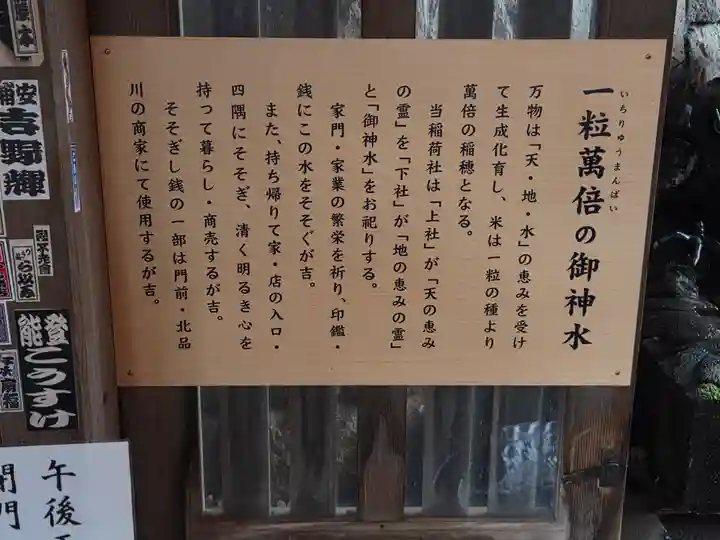 いちりゅうまんばい
一粒萬倍の御神水
万物は「天・地・水」の恵みを受け
て生成化育し、米は一粒の種より
萬倍の稲穂となる。
当稲荷社は「上社」が「天の恵み
の霊」を「下社」が「地の恵みの霊」
と「御神水」をお祀りする。
家門・家業の繁栄を祈り、印鑑・
銭にこの水をそそぐが吉。
また、持ち帰りて家・店の入口・
四隅にそそぎ、清く明るき心を
持って暮らし・商売するが吉。
そそぎし銭の一部は門前・北品
川の商家にて使用するが吉。
安
吉野輝
能登
こうすけ
午後
開門